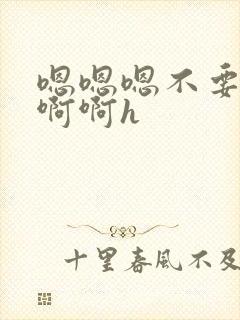 嗯嗯嗯不要
啊啊h
十里春風不及